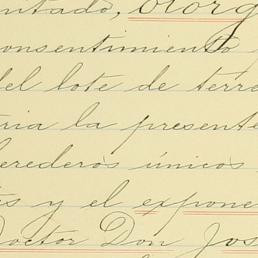 ntado, otorg
consentimiento
del lote de terre
ria la presente
herederos únicos
s y el expone
Doctor Don Jos